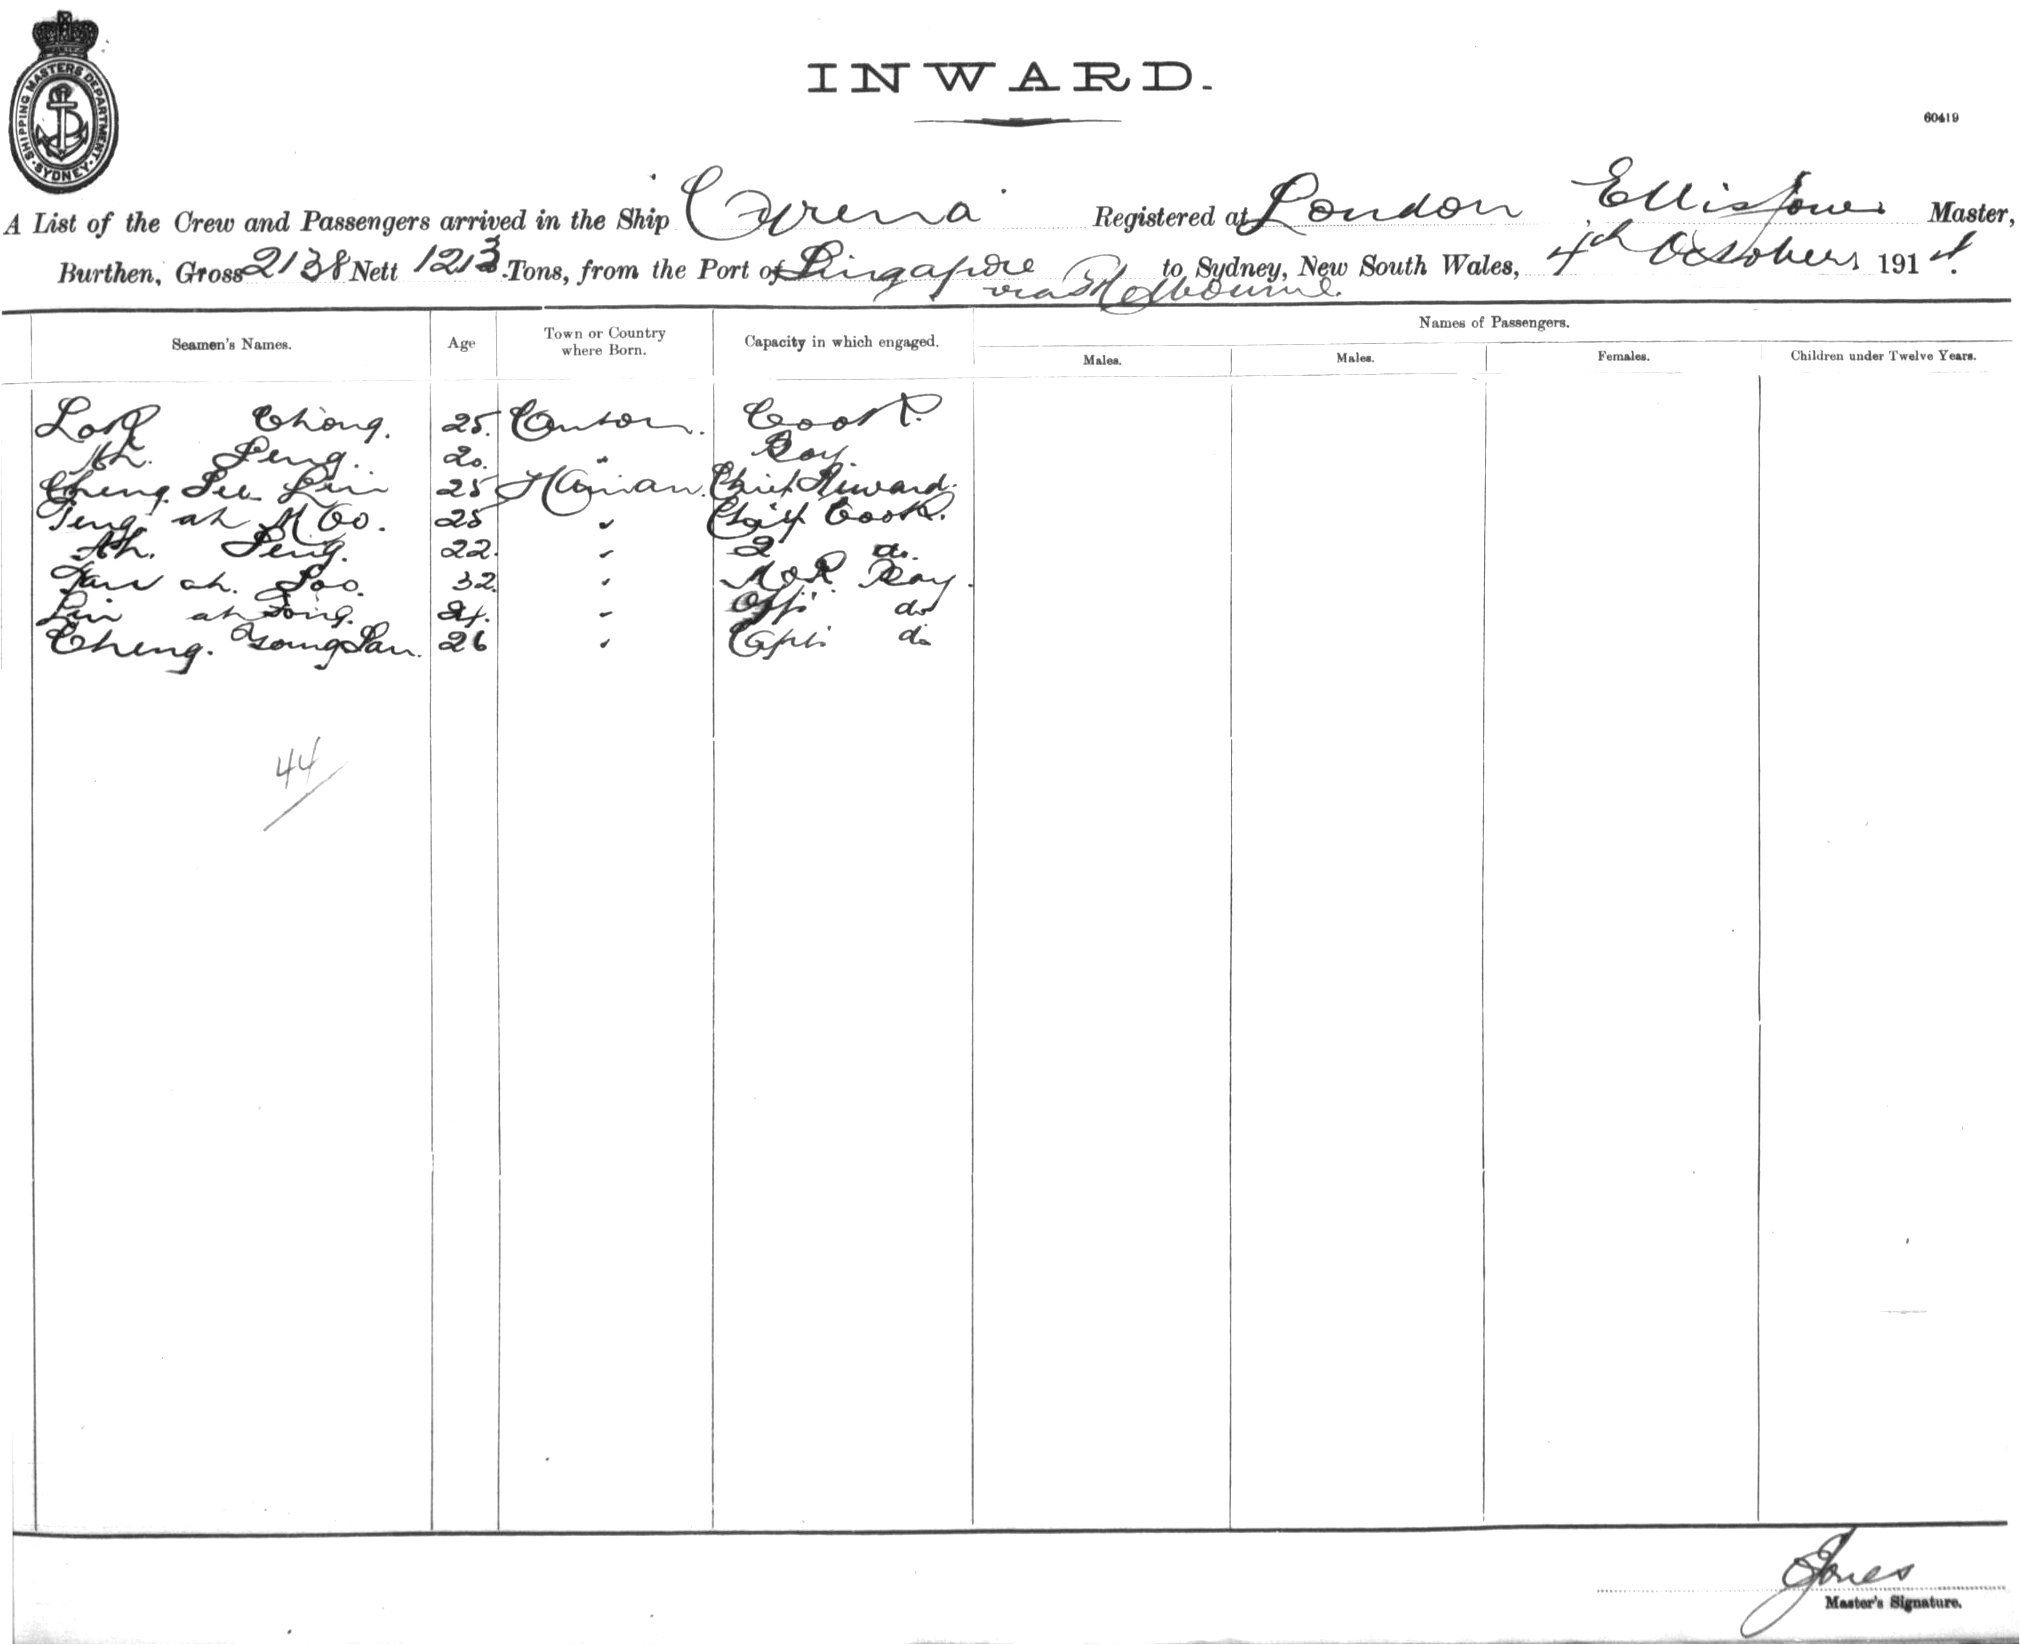 SHIPPING MASTERS DEPARTMENT. SYDNEY
INWARD.
60419
A List of the Crew and Passengers arrived in the Ship Cyrena Registered at London Ellis Jones Master,
Burthen, Gross 2138 Nett 1213 Tons, from the Port of Singapore to Sydney, New South Wales, 4th October 1914.
via Melbourne.
Seamen's Names. Age Town or Country where Born. Capacity in which engaged. Names of Passengers.
Males. Males. Females. Children under Twelve Years.
Lok Chong. 25. Canton. Cook.
Ah. Seng. 20. " Boy.
Cheng See Lin 25 Hainan. Chief Steward.
Teng ah Koo. 25 " Chief Cook.
Ah. Seng. 22. " 2 do.
Tan ah. Soo. 32. " Boy.
Lin ah Tong. 24. " Offs do
Cheng. Tsong San. 26 " Capts do
44
Jones
Master's Signature.